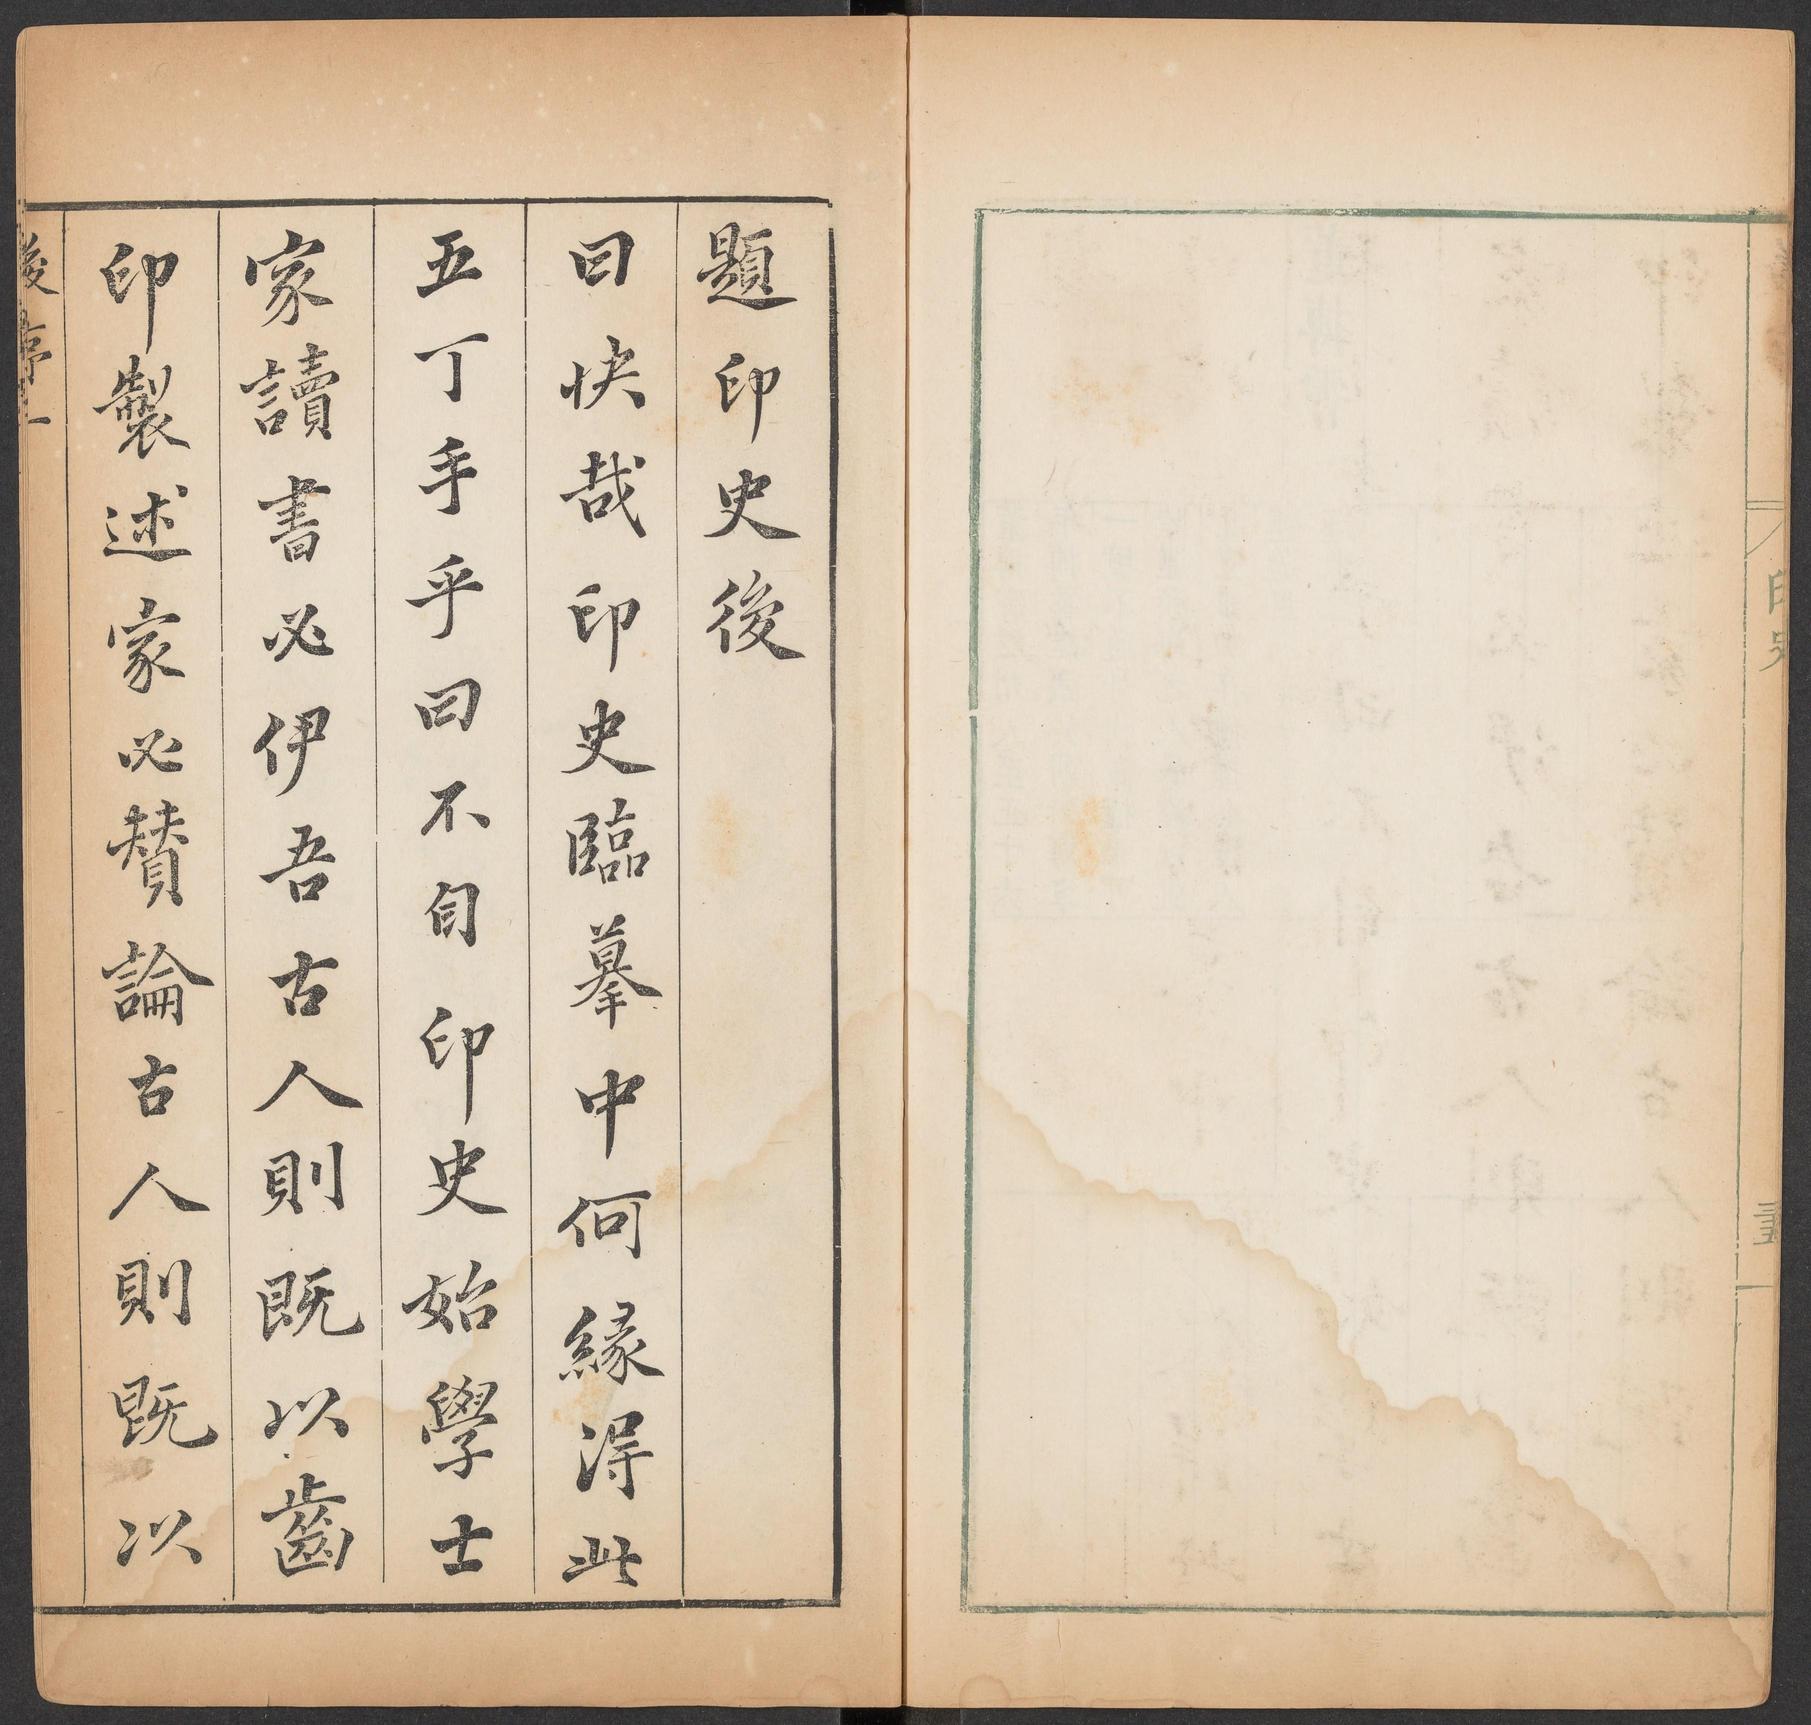 印史
題印史後
曰快哉印史臨摹中何緣淂此
五丁手乎曰不自印史始學士
家讀書必伊吾古人則既以齒
印製述家必賛論古人則既以
後序
一